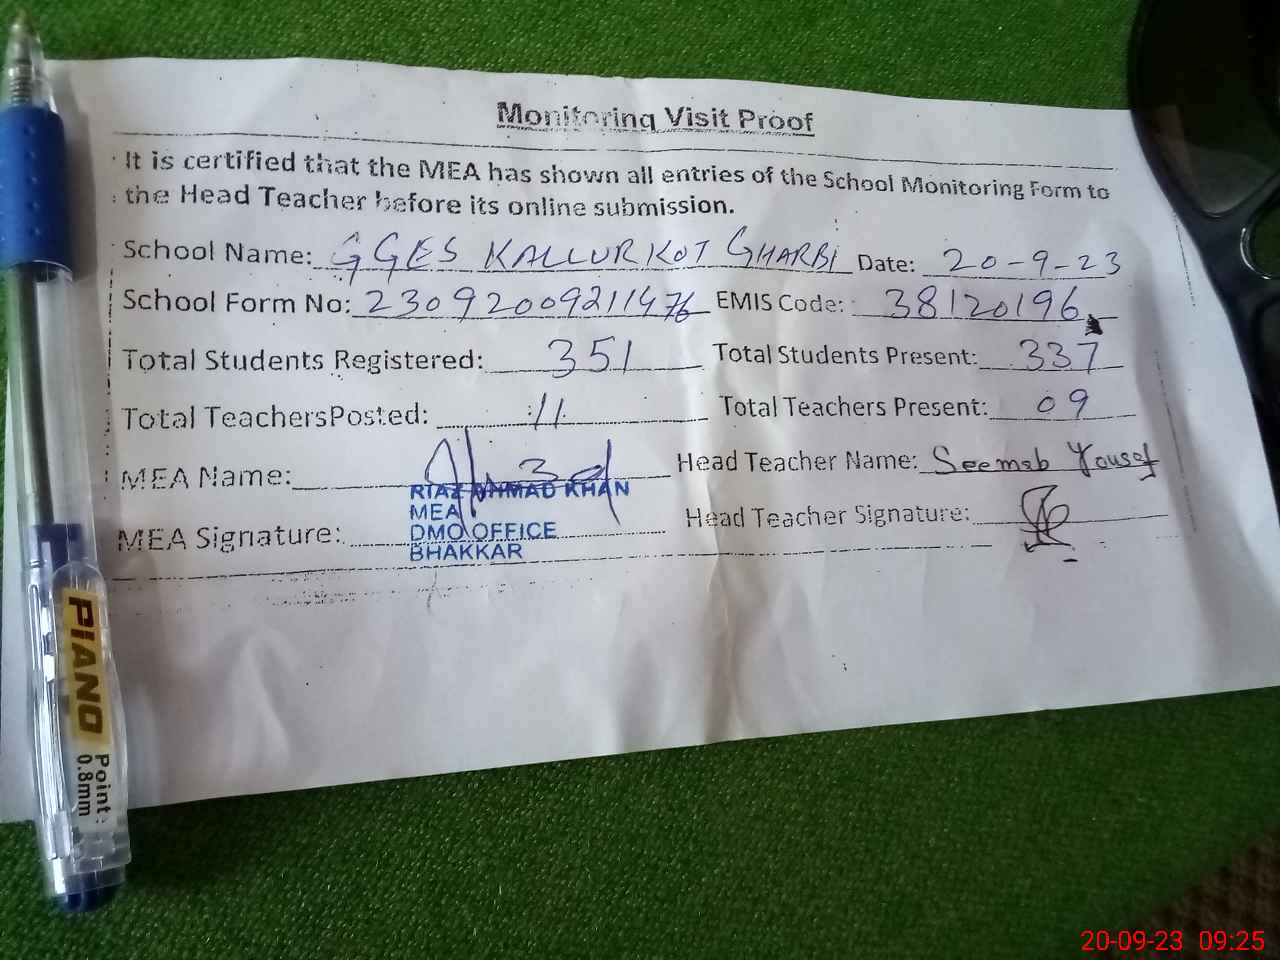 Monitoring Visit Proof
It is certified that the MEA has shown all entries of the School Monitoring Form to
the Head Teacher before its online submission.
School Name: GGES KALLUR KOT GHARBI Date: 20-9-23
School Form No: 23092009211476 EMIS Code: 38120196
Total Students Registered: 351 Total Students Present: 337
Total TeachersPosted: 11 Total Teachers Present: 09
MEA Name: Head Teacher Name: Seemab Yousaf
RIAZ AHMAD KHAN
MEA
MEA Signature: DMO OFFICE Head Teacher Signature:
BHAKKAR
PIANO
Point:
0.8mm
20-09-23 09:25